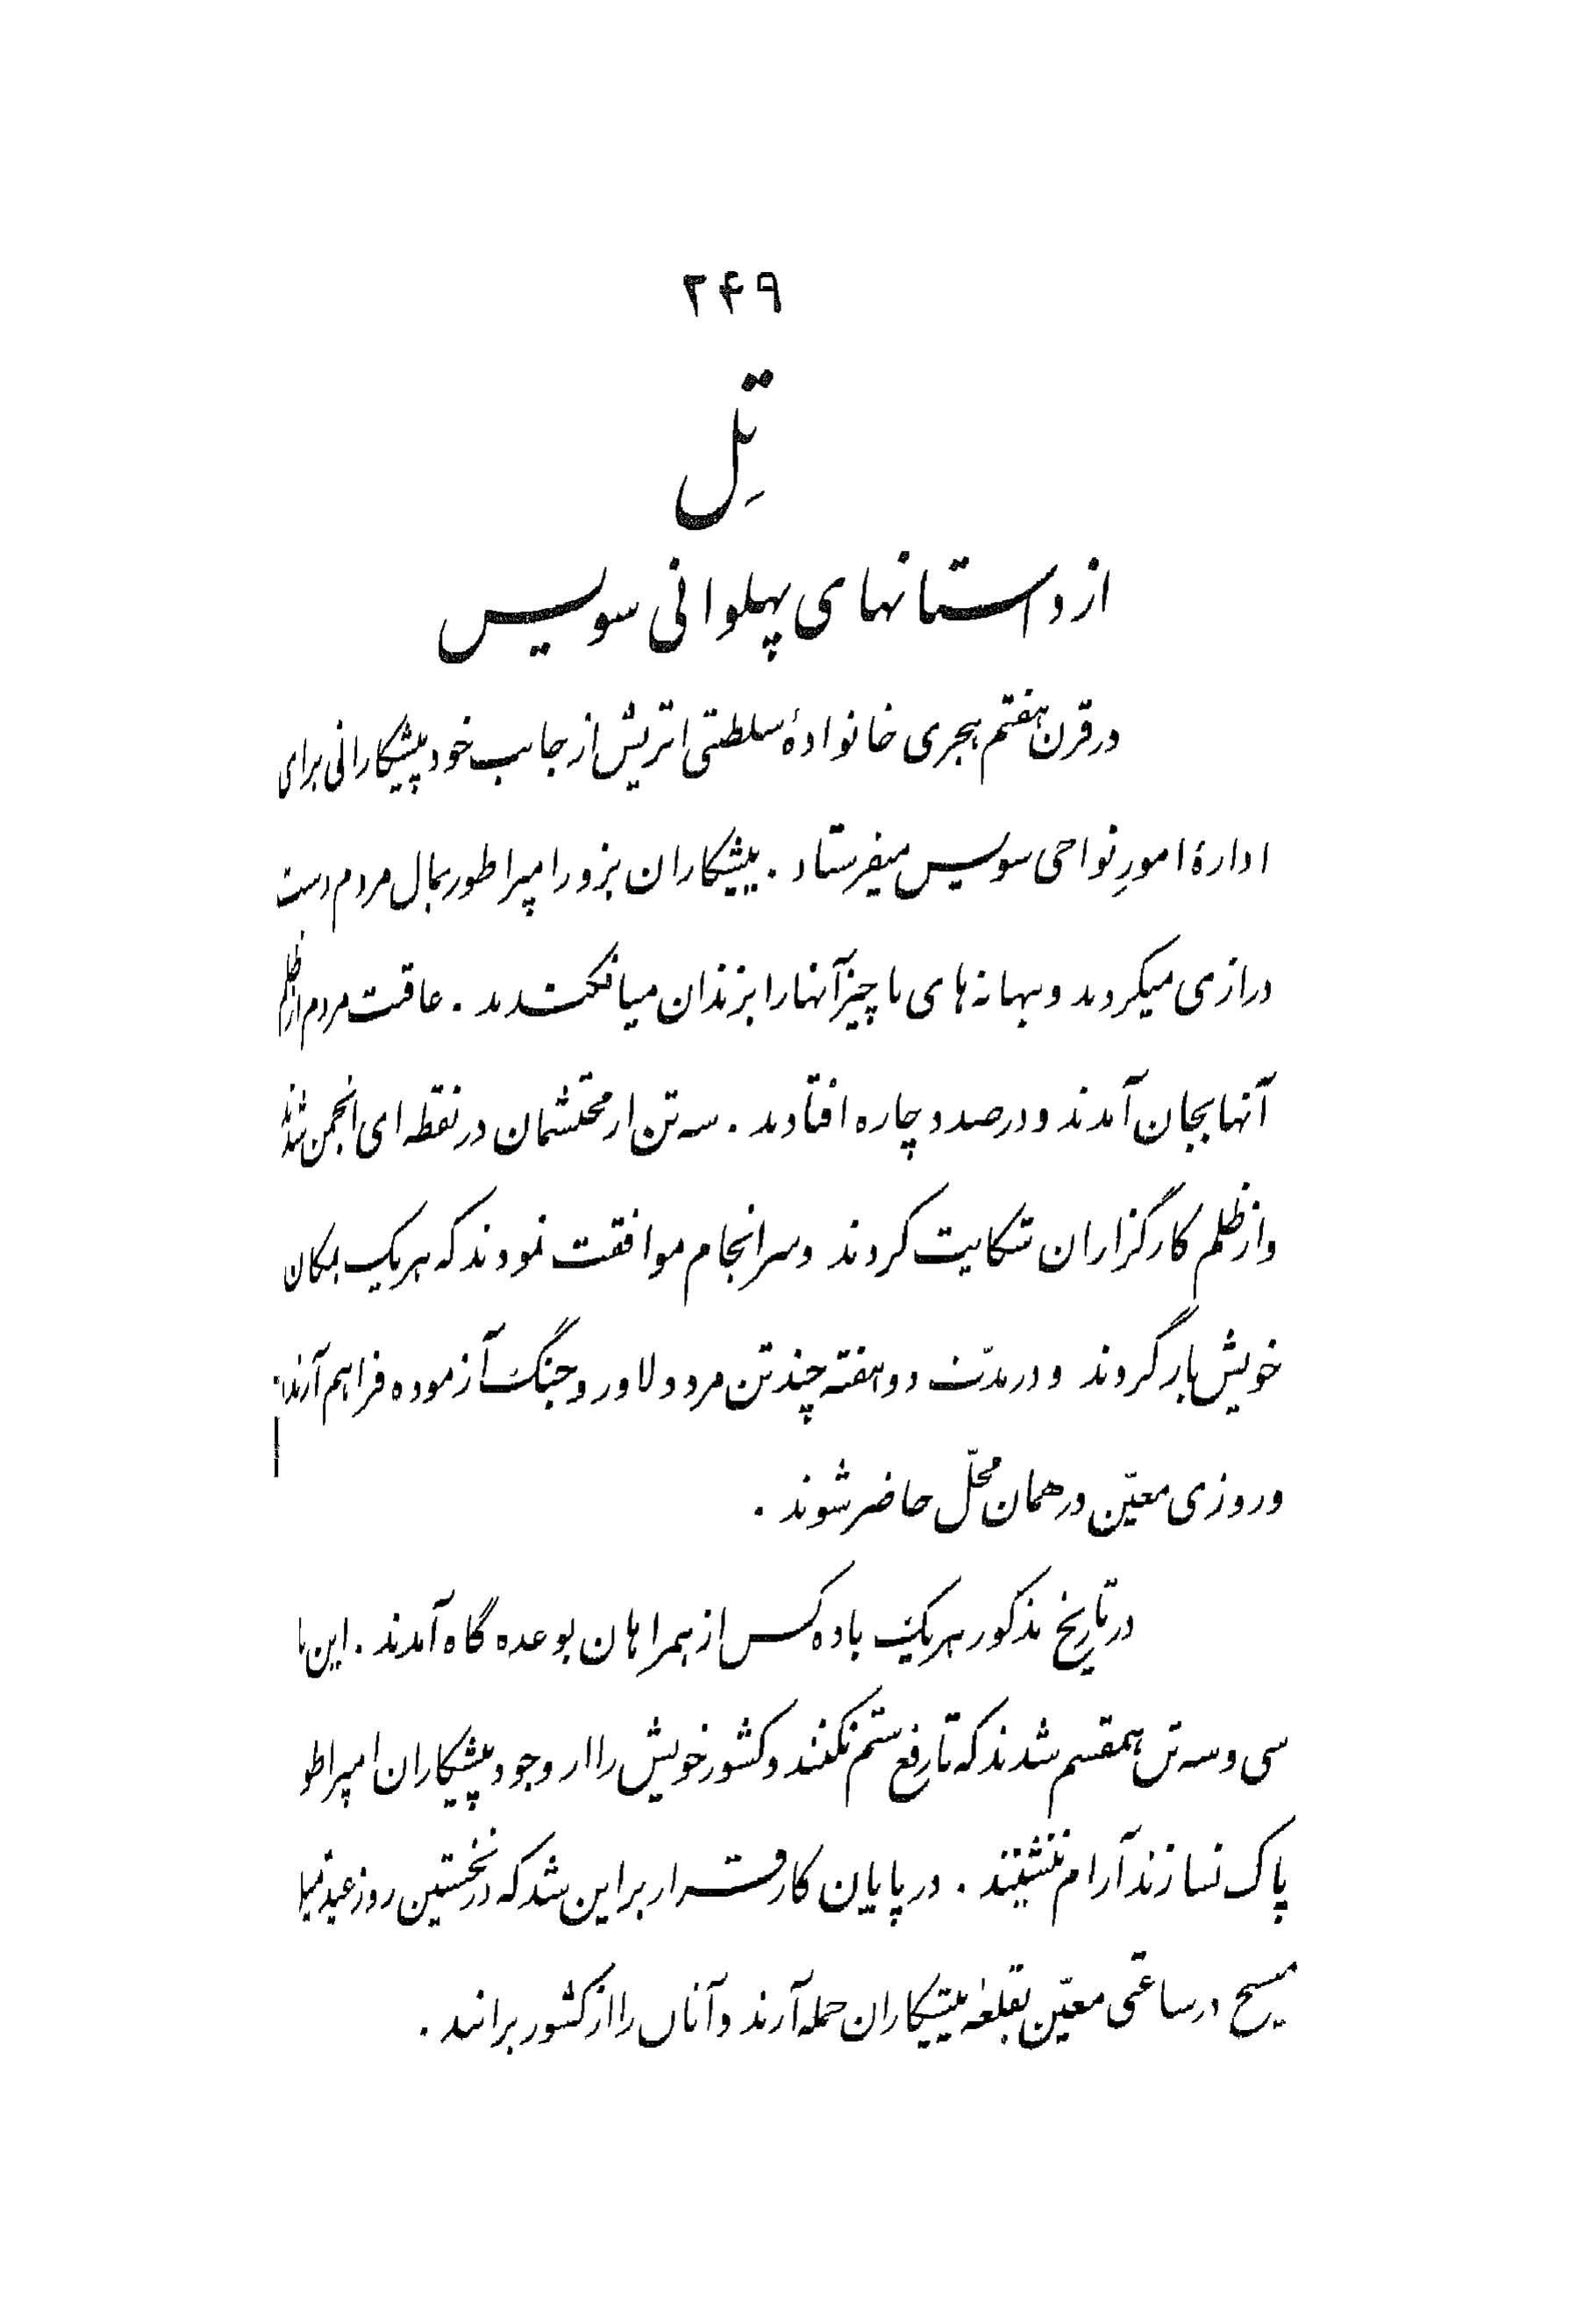 ۲۴۹
تِل
از داستانهای پهلوانی سویس
در قرن هفتم هجری خانوادۀ سلطنتی اتریش از جانب خود پیشکارانی برای
ادارۀ امورِ نواحی سویس میفرستاد . پیشکاران بزور امپراطور بمال مردم دست
درازی میکردند و ببهانه‌های ناچیز آنها را بزندان میافکندند . عاقبت مردم از ظلم
آنها بجان آمدند و در صدد چاره افتادند . سه تن از محتشمان در نقطه‌ای انجمن شدند
و از ظلم کارگزاران شکایت کردند و سرانجام موافقت نمودند که هر یک بمکان
خویش باز گردند و در مدّت دو هفته چند تن مرد دلاور و جنگ آزموده فراهم آرند
و روزی معیّن در همان محلّ حاضر شوند .
در تاریخ مذکور هر یک با ده کس از همراهان بوعده گاه آمدند . این
سی و سه تن همقسم شدند که تا رفع ستم نکنند و کشور خویش را از وجود پیشکاران امپراطو
پاک نسازند آرام ننشینند . در پایان کار قرار بر این شد که در نخستین روز عید میلا
مسیح در ساعتی معیّن بقلعۀ پیشکاران حمله آرند و آنان را از کشور برانند .